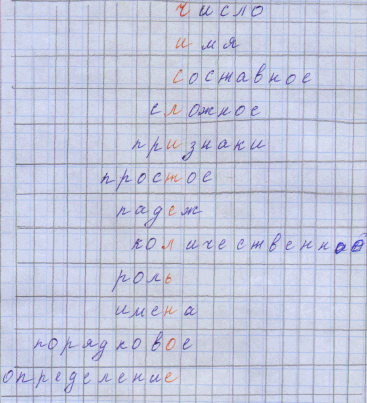 число
имя
составное
сложное
признаки
простое
падеж
количественное
роль
имена
порядковое
определение